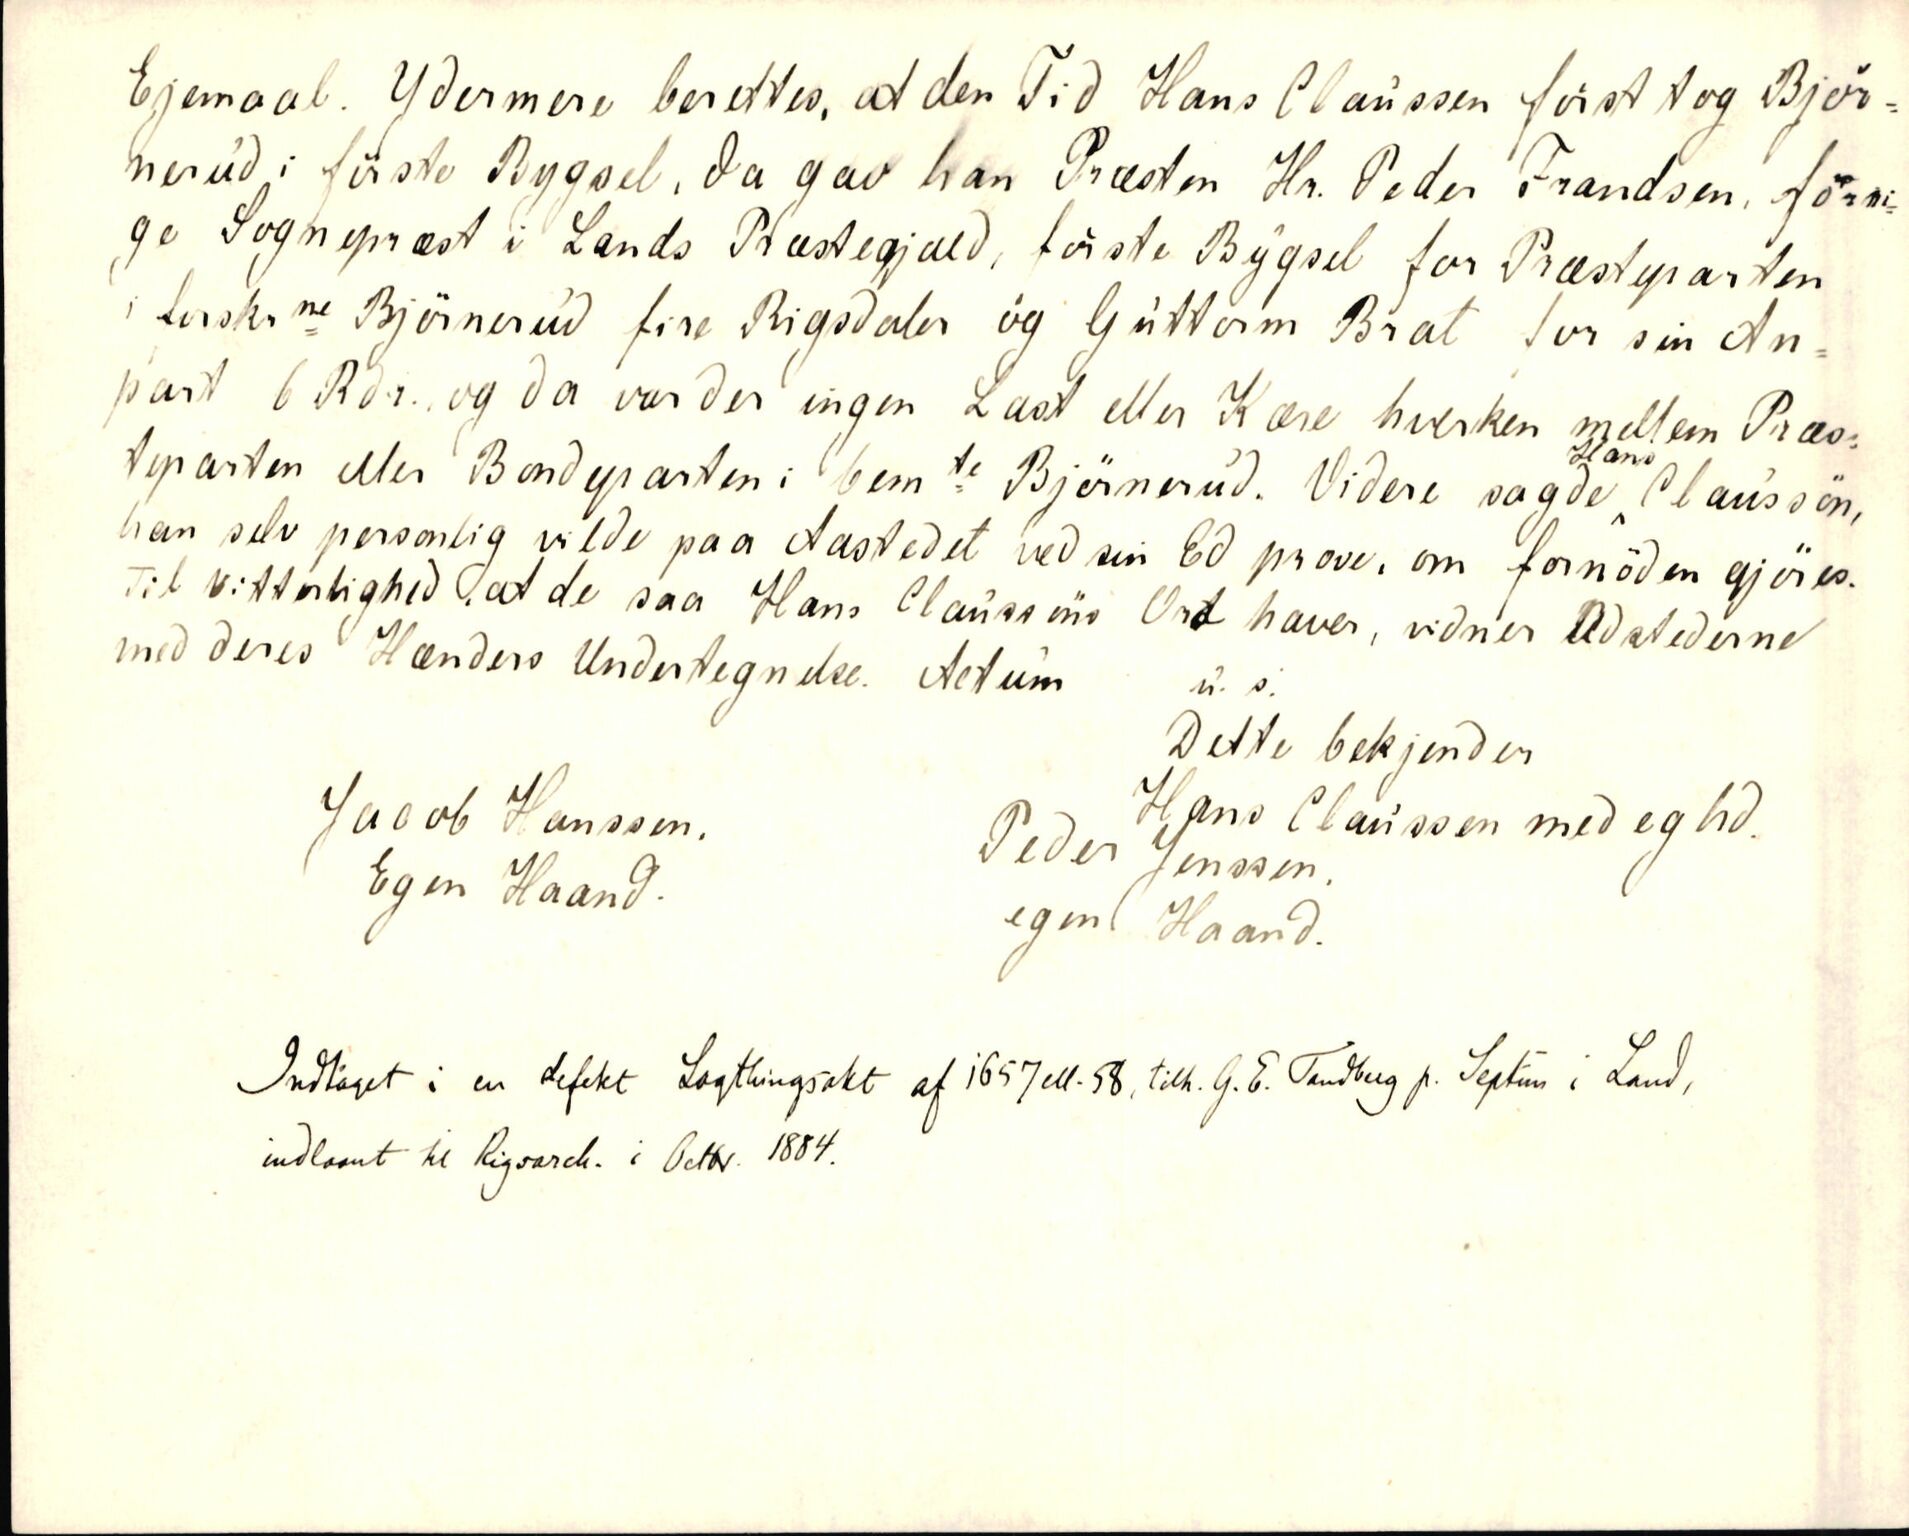 Ejemaal. Ydermere berettes, at den Tid Hans Claussen först tog Björ=
nerud i förste Bygsel, da gav han Præsten Hr. Peder Frandsen, forri=
ge Sognepræst i Lands Præstegjæld, förste Bygsel for Præsteparten
i forskrne Björnerud fire Rigsdaler og Guttorm Brat for sin An=
part 6 Rdr., og da var der ingen Last eller Kære hverken mellem Præs=
teparten eller Bondeparten i bemte Björnerud. Videre sagde Hans Claussön,
han selv personlig vilde paa Aastedet ved sin Ed prove, om fornöden gjöres.
Til Vitterlighed, at de saa Hans Claussöns Ord haver, vidner Udstederne
med deres Hænders Undertegnelse. Actum u. s.
Dette bekjender
Hans Claussen med eg hd.
Jacob Hanssen.
Egen Haand.
Peder Jenssen.
egen Haand.
Indtaget i en defekt Lagthingsakt af 1657 ell. 58, tilh. G. E. Tandberg p. Septun i Land,
indlaant til Rigsarch. i Octbr. 1884.